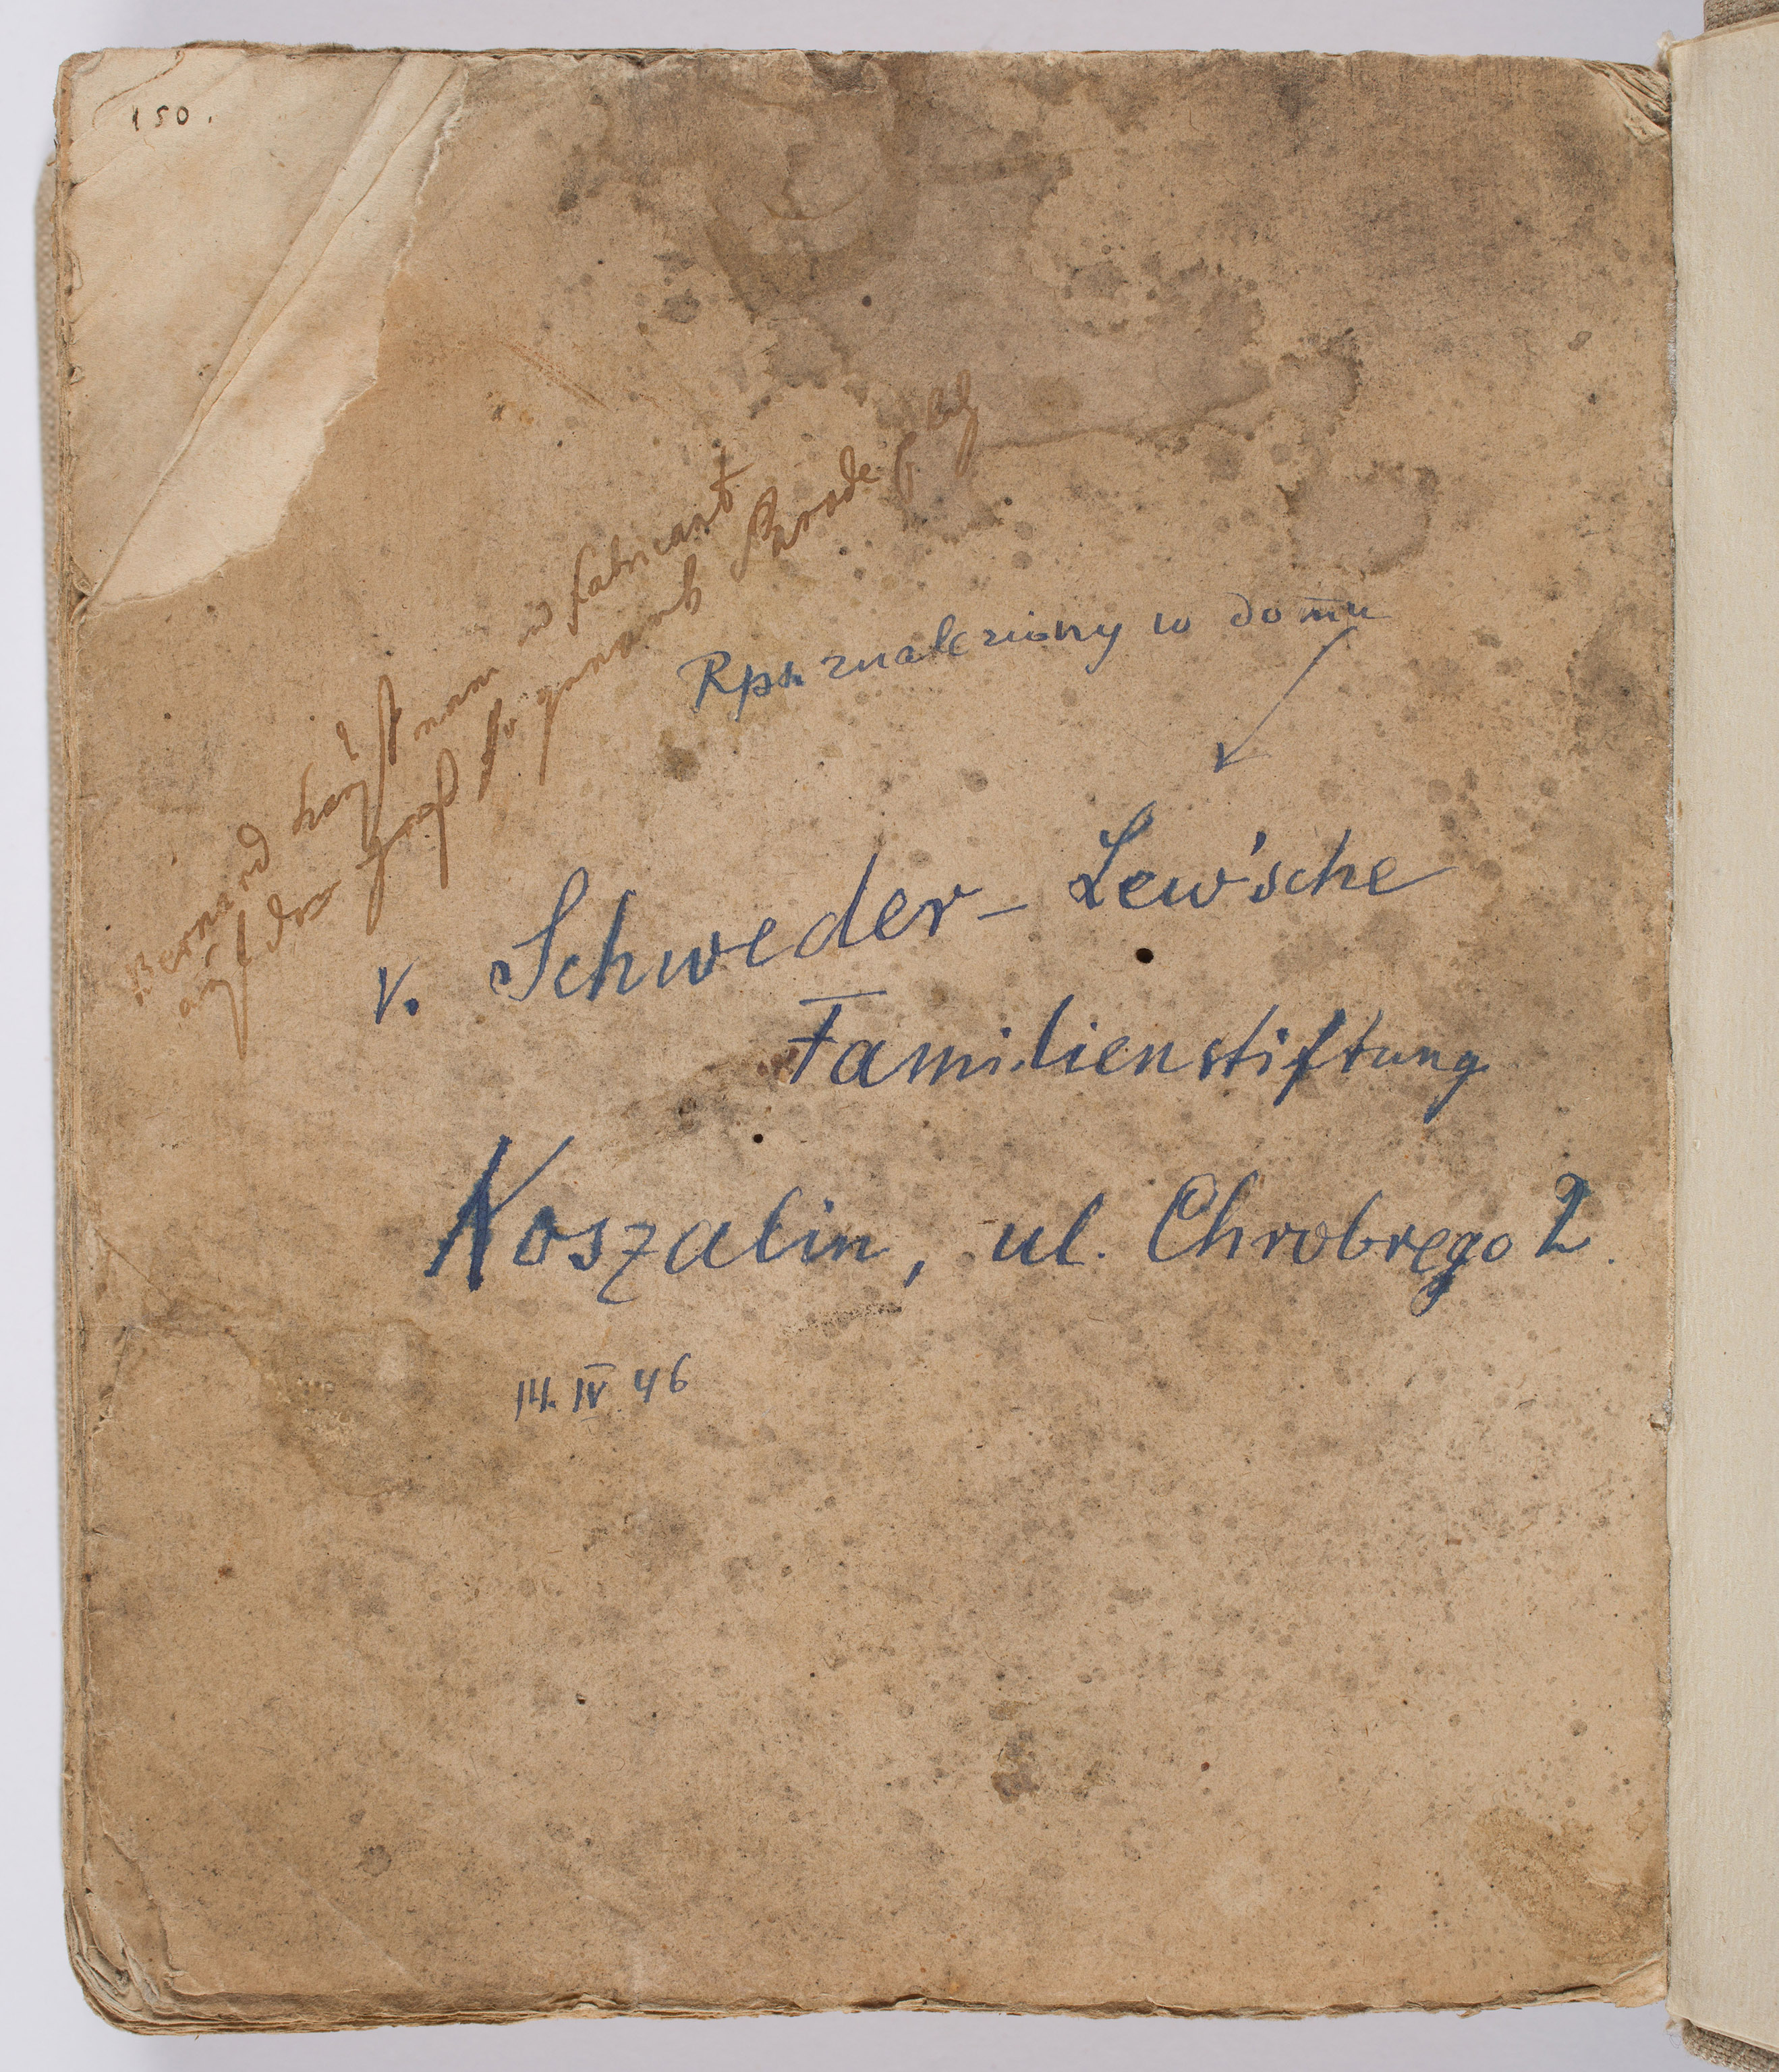 150.
Bernard Kauffman und fabricant
auf der genandt
Rps. znaleziony w domu
v. Schweder – Lew'sche
Familienstiftung
Koszalin, ul. Chrobrego 2.
14. IV. 46